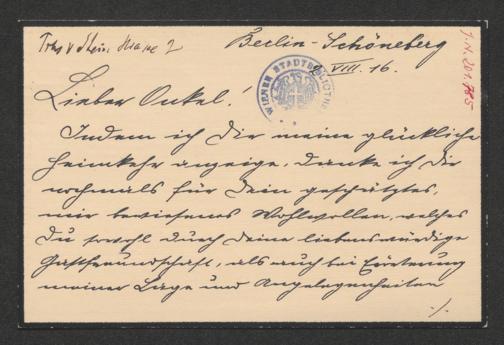 Berlin-Schöneberg
VIII. 16.
J.N. 201.785
WIENER STADTBIBLIOTHEK
Lieber Onkel!
Indem ich Dir meine glückliche
Heimkehr anzeige, danke ich Dir
nochmals für Dein geschätztes,
mir bewiesenes Wohlwollen, welches
Du sowohl durch Deine liebenswürdige
Gastfreundschaft, als auch bei Erörterung
meiner Lage und Angelegenheiten
./.